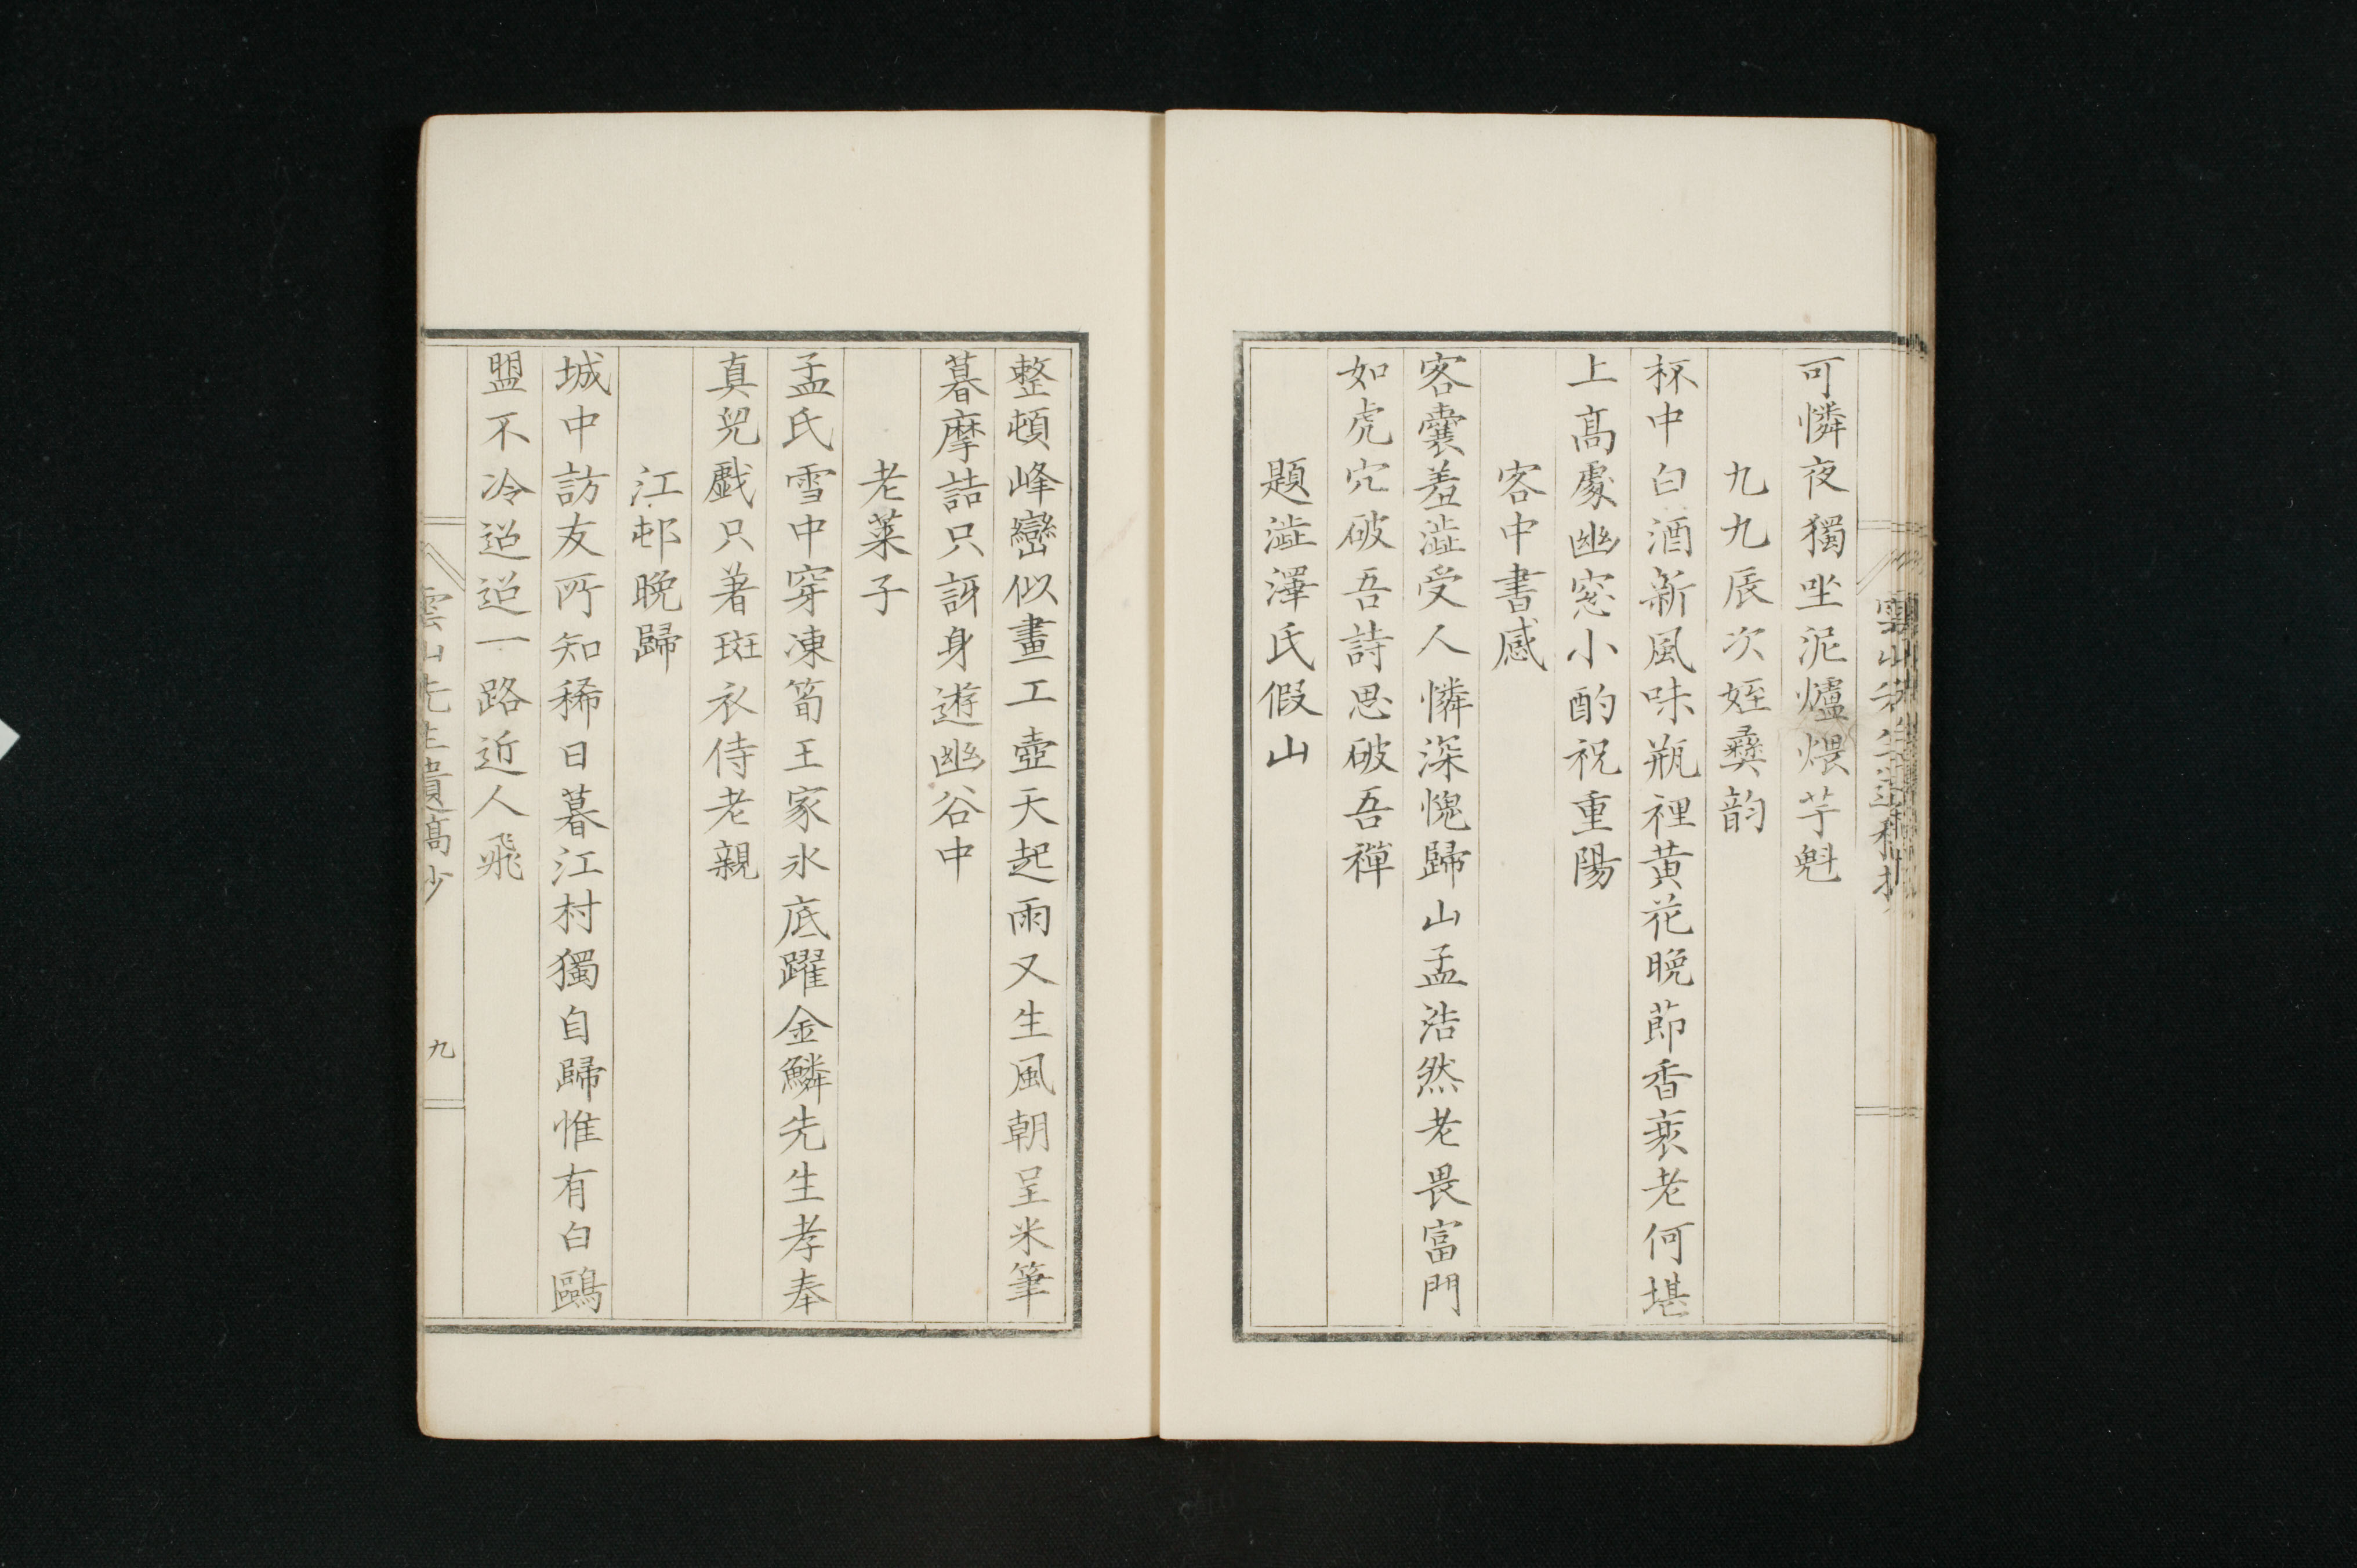 可憐夜獨坐泥爐煨芋魁
九九辰次姪彝韵
杯中白酒新風味瓶裡黄花晩節香衰老何堪
上髙處幽窓小酌祝重陽
客中書感
客囊羞澁受人憐深愧歸山孟浩然老畏富門
如虎穴破吾詩思破吾禪
題澁澤氏假山
整頓峰巒似畫工壺天起雨又生風朝呈米筆
暮摩詰只訝身遊幽谷中
老菜子
孟氏雪中穿凍筍王家氷底躍金鱗先生孝奉
真兒戯只著斑衣侍老親
江邨晩歸
城中訪友所知稀日暮江村獨自歸惟有白鷗
盟不冷迢迢一路近人飛
雲山先生遺髙抄
九